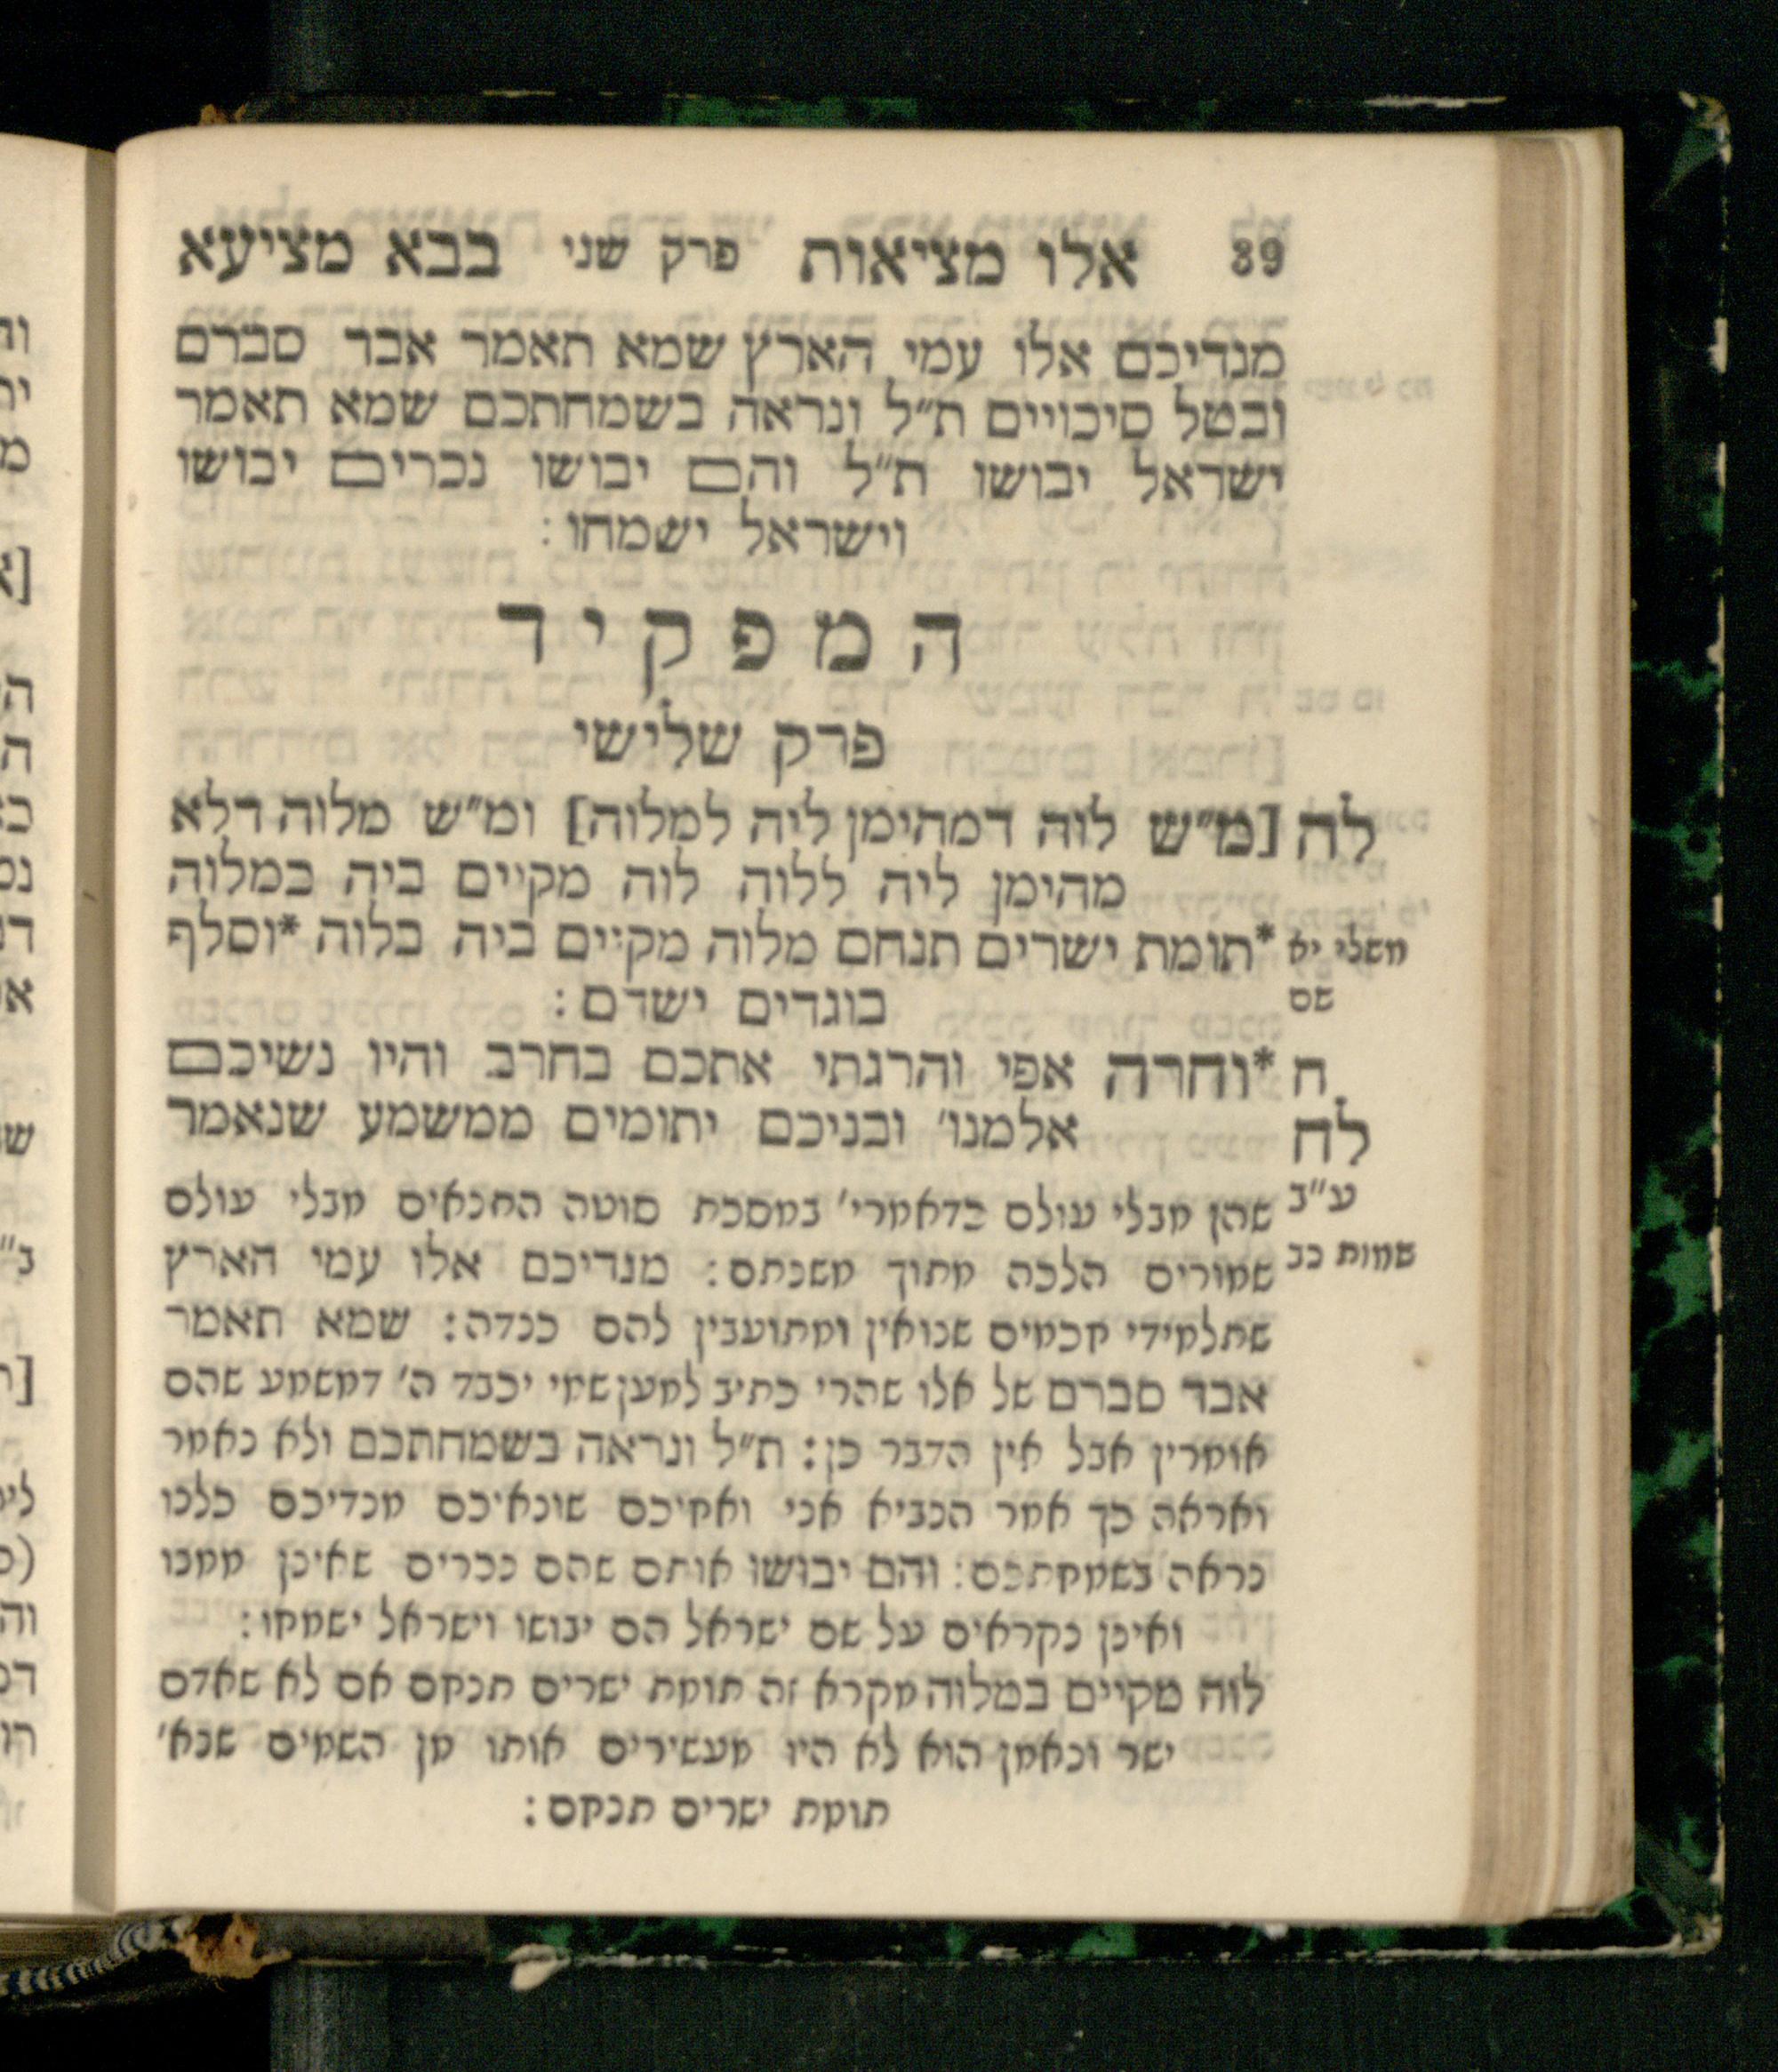 89 אלו מציאות פרק שני בבא מציעא
מנדיכם אלו עמי הארץ שמא תאמר אבד סברם
ובטל סיכויים ת״ל ונראה בשמחתכם שמא תאמר
ישראל יבושו ת״ל והם יבושו נכרים יבושו
וישראל ישמחו:
המפקיד
פרק שלישי
לה [מ״ש לוה דמהימן ליה למלוה] ומ״ש מלוה דלא
מהימן ליה ללוה לוה מקיים ביה במלוה
משלי יא *תומת ישרים תנחם מלוה מקיים ביה בלוה *וסלף
שם בוגדים ישדם:
ח *וחרה אפי והרגתי אתכם בחרב והיו נשיכם
לח אלמנו׳ ובניכם יתומים ממשמע שנאמר
ע״ב שהן מבלי עולם כדאמרי׳ במסכת סוטה התנאים מבלי עולם
שמות כב שמורים הלכה מתוך משנתם: מנדיכם אלו עמי הארץ
שתלמידי חכמים שנואין ומתועבין להם כנדה: שמא תאמר
אבד סברם של אלו שהרי כתיב למען שמי יכבד ה׳ דמשמע שהם
אומרין אבל אין הדבר כן: ת״ל ונראה בשמחתכם ולא נאמר
ואראה כך אמר הנביא אני ואחיכם שונאיכם מנדיכם כלנו
נראה בשמחתכם: והם יבושו אותם שהם נכרים שאינן ממנו
ואינן נקראים על שם ישראל הם יבושו וישראל ישמחו:
לוה מקיים במלוה מקרא זה תומת ישרים תנחם אם לא שאדם
ישר ונאמן הוא לא היו מעשירים אותו מן השמים שנא׳
תומת ישרים תנחם: